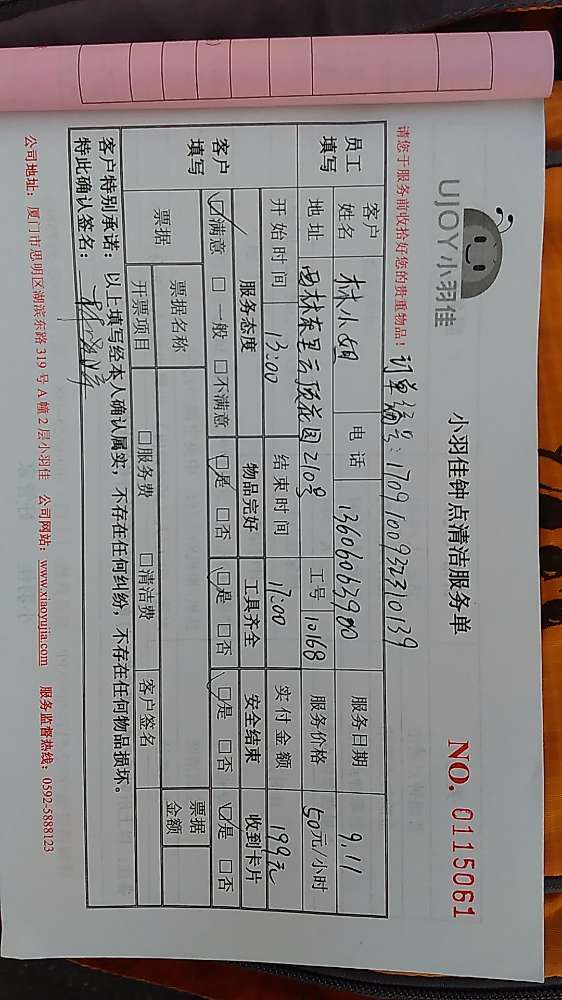 UJOY小羽佳
小羽佳钟点清洁服务单
NO. 0115061
请您于服务前收拾好您的贵重物品！
订单编号：1709100932310139
员工填写 客户姓名 林小姐 电话 13606063900 服务日期 9.11
地址 西林东里云顶花园210号 工号 10168 服务价格 50元/小时
开始时间 13:00 结束时间 17:00 实付金额 199元
客户填写 服务态度 物品完好 工具齐全 安全结束 收到卡片
☑满意 □一般 □不满意 ☑是 □否 ☑是 □否 ☑是 □否 ☑是 □否
票据 票据名称 票据金额
开票项目 □服务费 □清洁费 客户签名
客户特别承诺： 以上填写经本人确认属实，不存在任何纠纷，不存在任何物品损坏。
特此确认签名：
公司地址： 厦门市思明区湖滨东路 319 号 A 幢 2 层小羽佳 公司网站：www.xiaoyujia.com 服务监督热线：0592-5888123